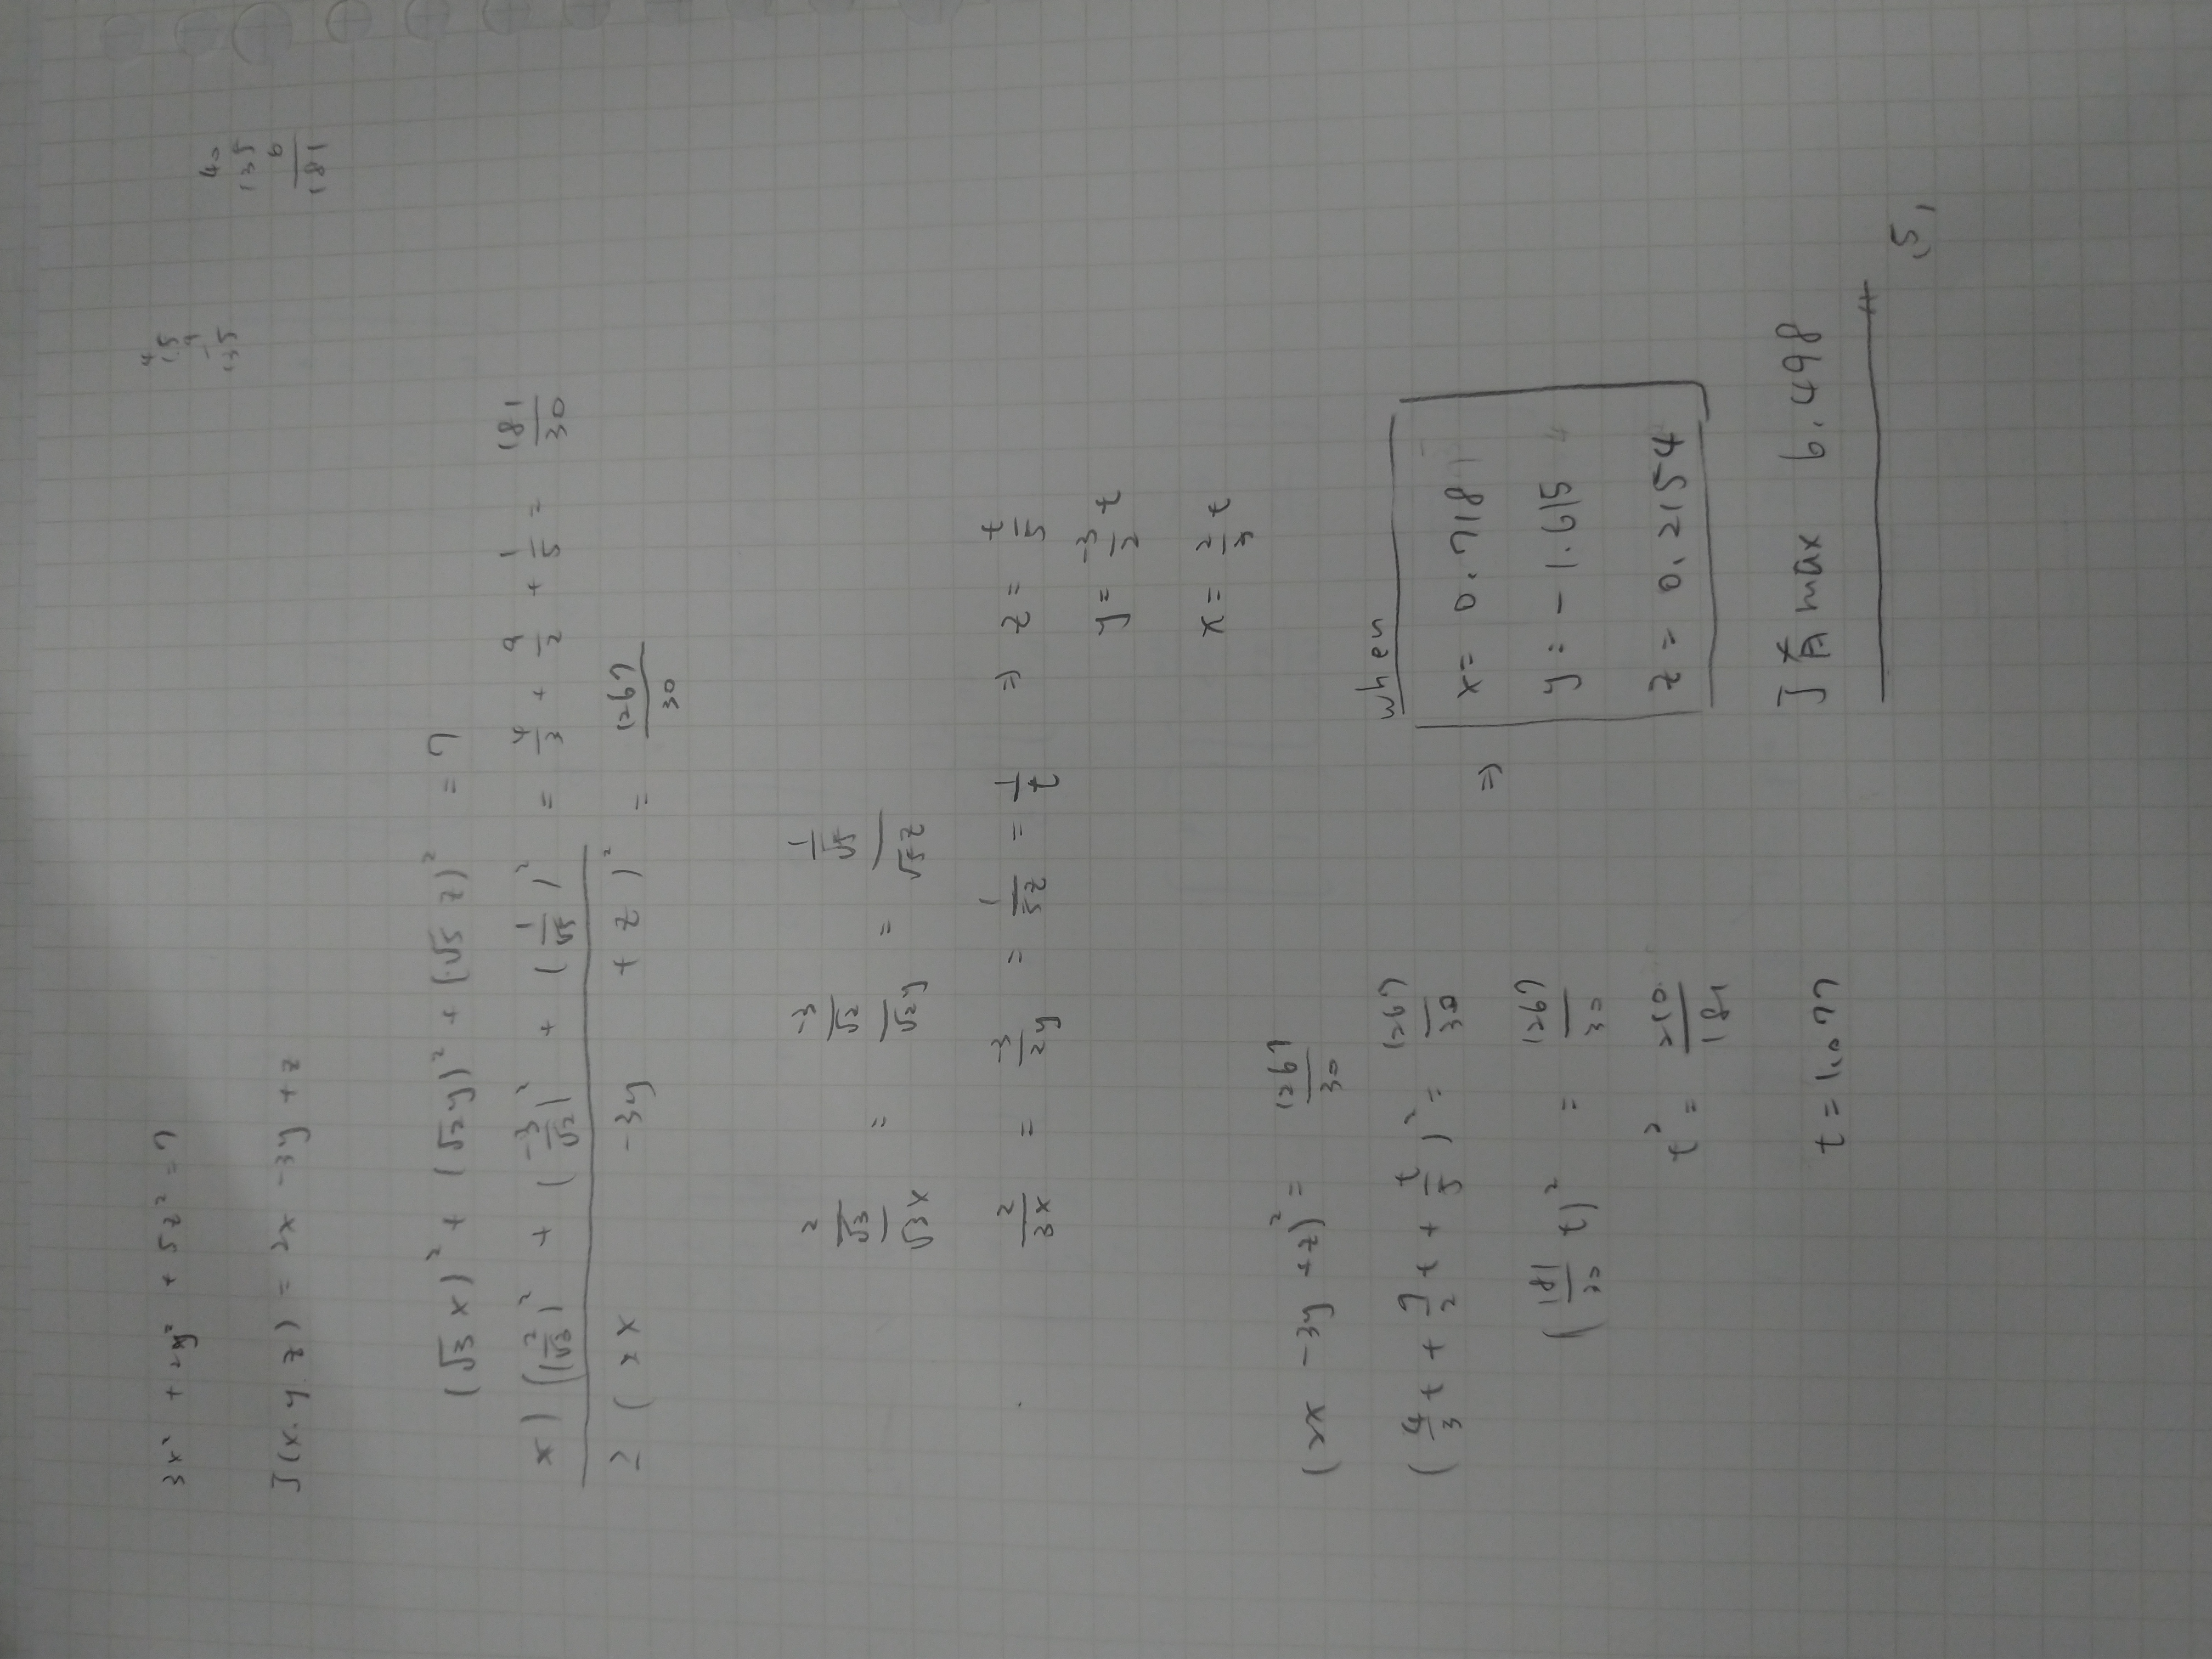 3x² + 2y² + 5z² = 7
4
15
9
135
40
135
6
181
J(x, y, z) = 2x - 3y + z
(√3 x)² + (√2 y)² + (√5 z)² = 7
x) ((2/√3)² + (-3/√2)² + (1/√5)² = 4/3 + 9/2 + 1/5 = 181/30
≥ (2x - 3y + z)² = 1267/30
(2/√3)/(√3x) = (-3/√2)/(√2y) = (1/√5)/(√5z)
2/3x = -3/2y = 1/5z = 1/t ⇒ z = t/5
y = -3/2 t
x = 2/3 t
(2x - 3y + z)² = 1267/30
(4/3 t + 9/2 t + t/5)² = 1267/30
(181/30 t)² = 1267/30
t² = 210/181
t = 1.077
⇒
when
x = 0.718
y = -1.615
z = 0.2154
J有 max 6.498